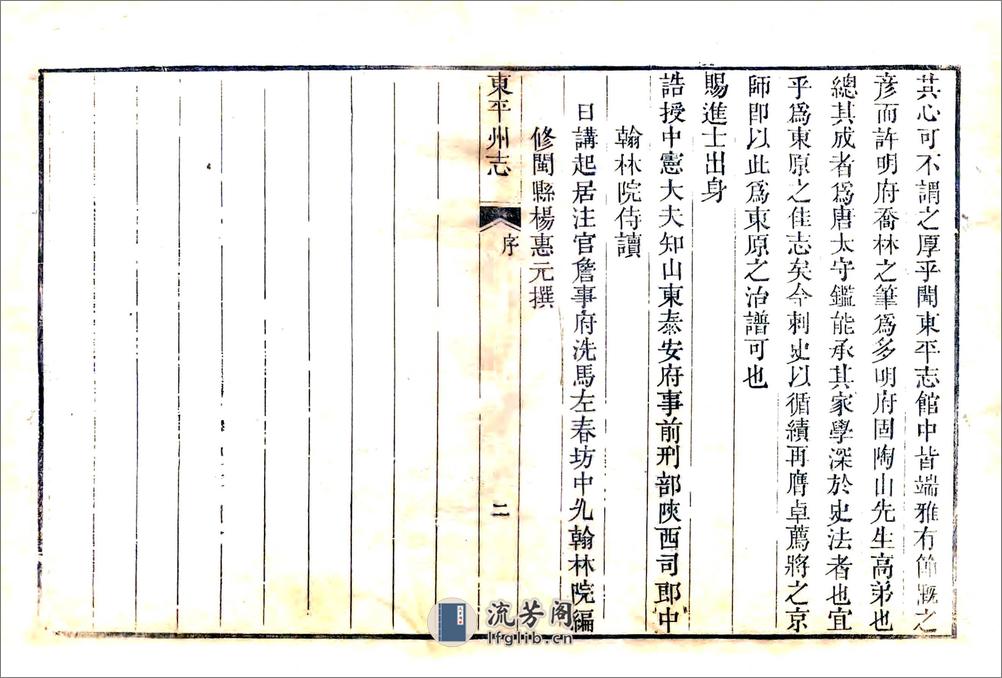 其心可不謂之厚乎聞東平志館中皆端雅有節槪之
彥而許明府喬林之筆爲多明府固陶山先生高弟也
總其成者爲唐太守鑑能承其家學深於史法者也宜
乎爲東原之佳志矣今刺史以循績再膺卓薦將之京
師即以此爲東原之治譜可也
賜進士出身
誥授中憲大夫知山東泰安府事前刑部陝西司郎中
翰林院侍讀
日講起居注官詹事府洗馬左春坊中允翰林院編
修閩縣楊惠元撰
東平州志 序 二
流芳阁
lfglib.cn